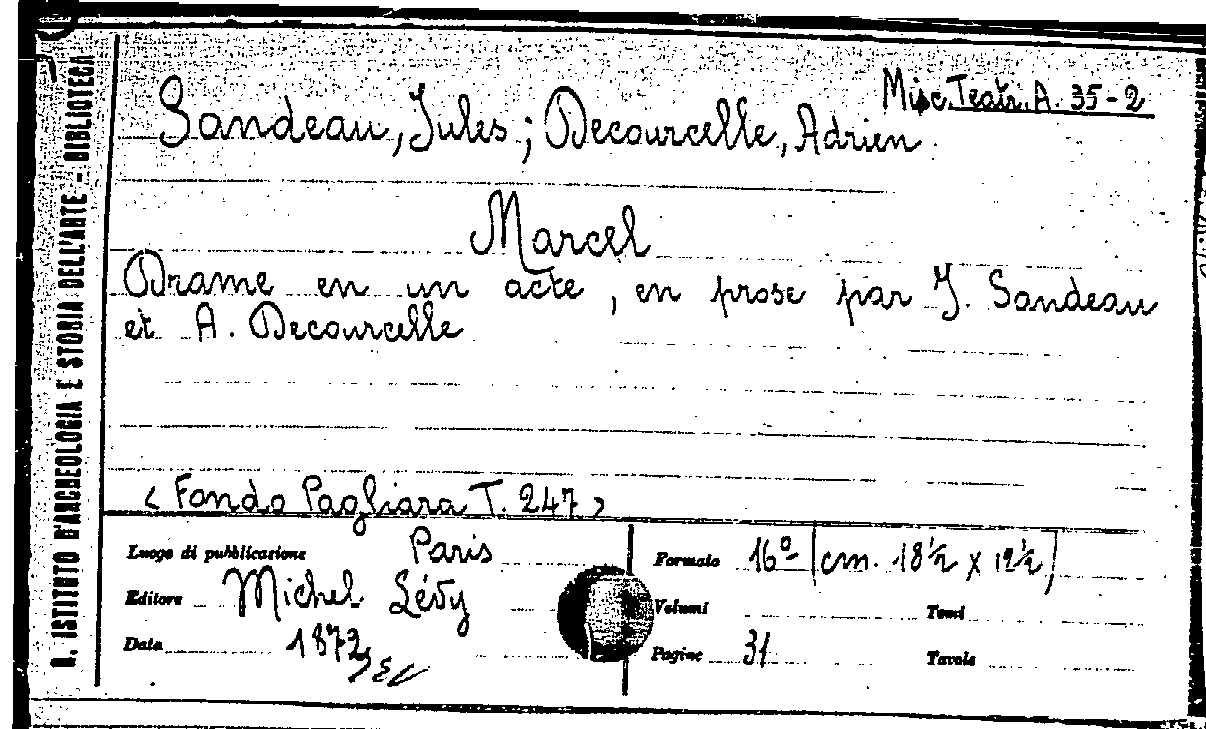 R. ISTITUTO D'ARCHEOLOGIA E STORIA DELL'ARTE - BIBLIOTECA
Misc. Teatr. A. 35-2
Sandeau, Jules; Decourcelle, Adrien
Marcel
Drame en un acte, en prose par J. Sandeau
et A. Decourcelle
< Fondo Pagliara T. 247 >
Luogo di pubblicazione Paris
Formato 16º (cm. 18½ x 12½)
Editore Michel Lévy
Volumi Tomi
Data 1872
Pagine 31 Tavole